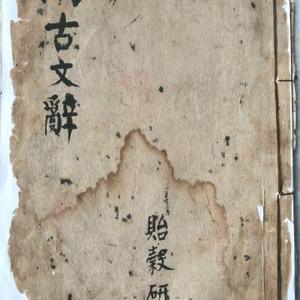 古文辭
貽穀研